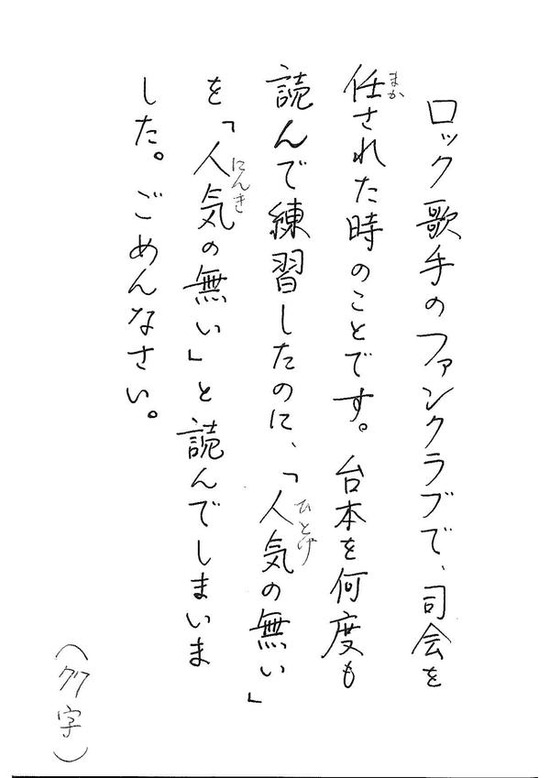 ロック歌手のファンクラブで、司会を
任された時のことです。台本を何度も
読んで練習したのに、「人気の無い」
を「人気の無い」と読んでしまいま
した。ごめんなさい。
まか
ひとげ
にんき
(77字)